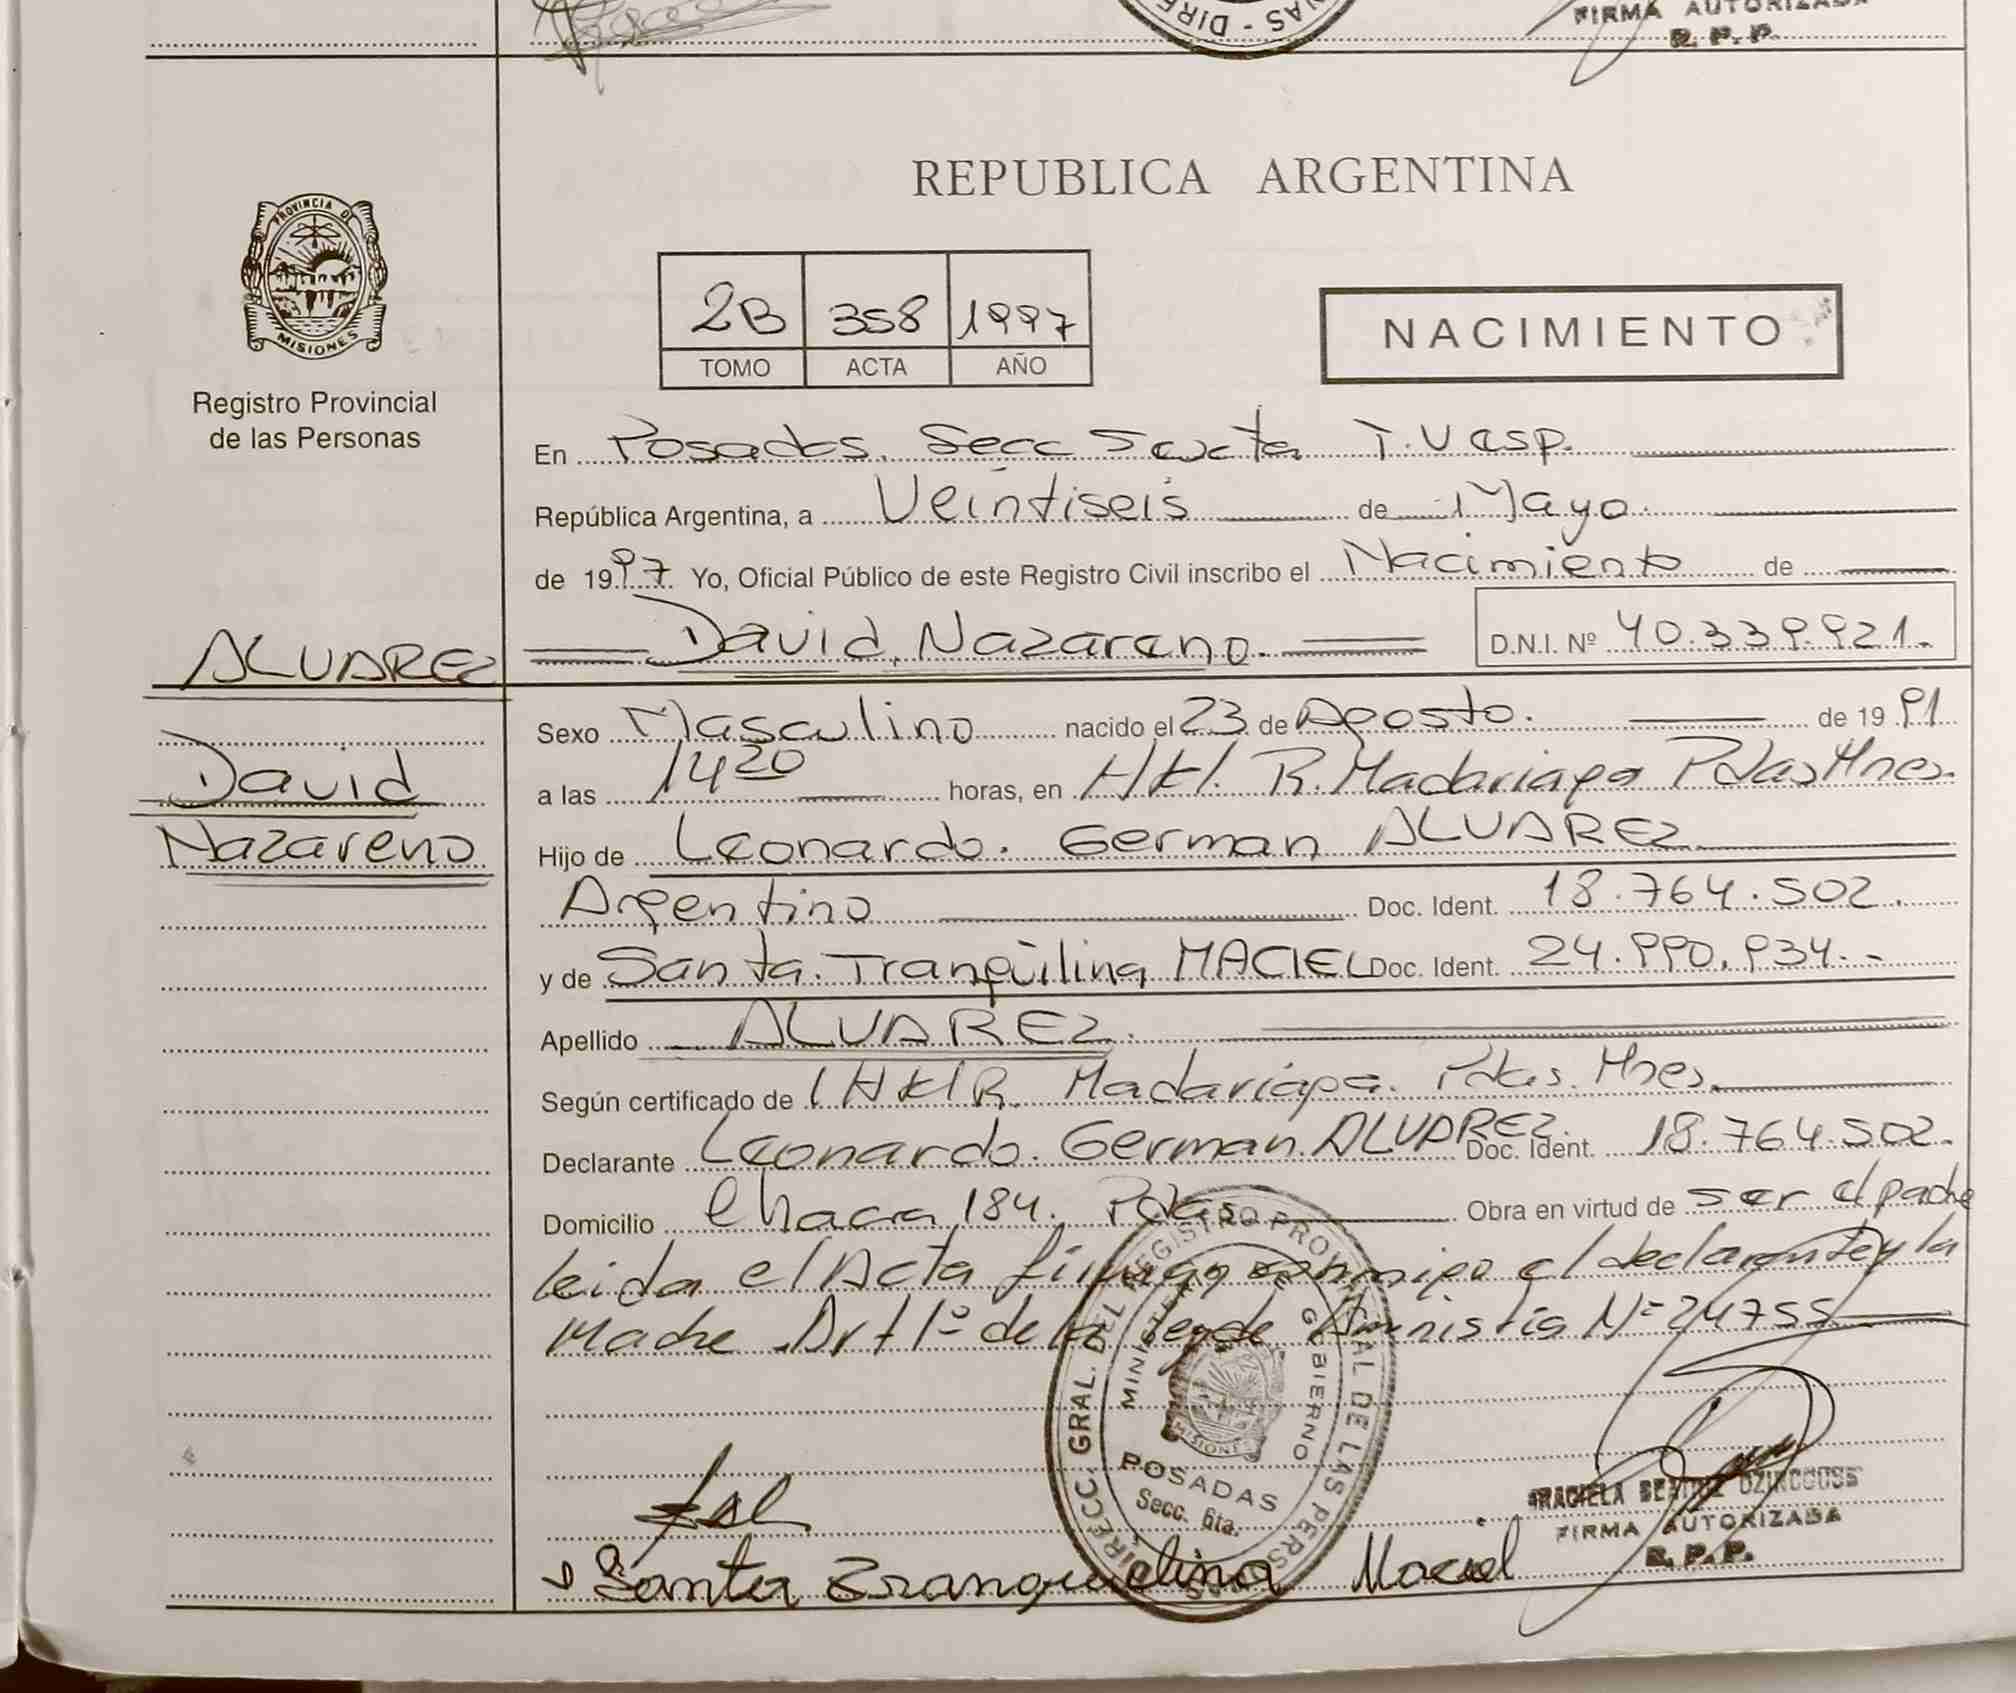 DIRE - NAS
FIRMA AUTORIZADA
R. P. P.
PROVINCIA DE
MISIONES
Registro Provincial
de las Personas
REPUBLICA ARGENTINA
2B 358 1997
TOMO ACTA AÑO
NACIMIENTO
En Posadas. Secc Sexta T. Vesp.
República Argentina, a Veintiseis de Mayo.
de 1997 Yo, Oficial Público de este Registro Civil inscribo el Nacimiento de
David, Nazareno. D.N.I. Nº 40.339.921.-
ALVAREZ
David
Nazareno
Sexo Masculino nacido el 23 de Agosto. de 1991
a las 14 20 horas, en Htl. R. Madariaga Pdas Mnes.
Hijo de Leonardo. German ALVAREZ
Argentino Doc. Ident. 18.764.502.
y de Santa. Tranqüilina MACIEL Doc. Ident. 24.990.934.-
Apellido ALVAREZ.
Según certificado de Htl R. Madariaga. Pdas. Mnes.
Declarante Leonardo. German. ALVAREZ. Doc. Ident. 18.764.502.
Domicilio Chacra 184. Pdas Obra en virtud de ser el padre
leida el Acta firman conmigo el declarante y la
Madre Art 1º de la ley de Amnistia Nº 24755
DIRECC. GRAL. DEL REGISTRO PROVINCIAL DE LAS PERSONAS
MINISTERIO DE GOBIERNO
MISIONES
POSADAS
Secc. 6ta.
GRACIELA BEATRIZ
FIRMA AUTORIZADA
R. P. P.
Santa Tranquilina Maciel